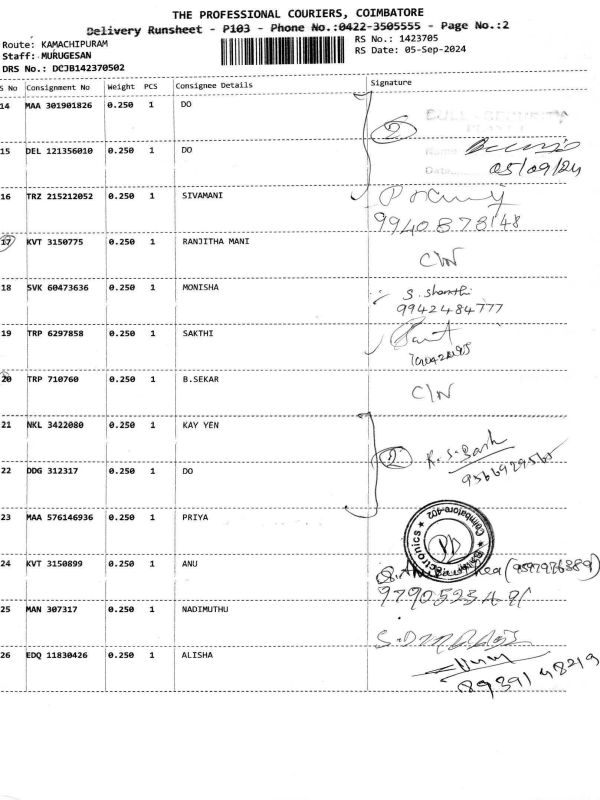 THE PROFESSIONAL COURIERS, COIMBATORE
Delivery Runsheet - P103 - Phone No.:0422-3505555 - Page No.:2
Route: KAMACHIPURAM
RS No.: 1423705
Staff: MURUGESAN
RS Date: 05-Sep-2024
DRS No.: DCJB142370502
S No Consignment No Weight PCS Consignee Details Signature
14 MAA 301901826 0.250 1 DO
2
15 DEL 121356010 0.250 1 DO
05/09/24
16 TRZ 215212052 0.250 1 SIVAMANI
9940878148
17 KVT 3150775 0.250 1 RANJITHA MANI
C/N
18 SVK 60473636 0.250 1 MONISHA
S. Shanthi
9942484777
19 TRP 6297858 0.250 1 SAKTHI
20 TRP 710760 0.250 1 B.SEKAR
C/N
21 NKL 3422080 0.250 1 KAY YEN
2
22 DDG 312317 0.250 1 DO
23 MAA 576146936 0.250 1 PRIYA
Coimbatore-402
24 KVT 3150899 0.250 1 ANU
25 MAN 307317 0.250 1 NADIMUTHU
26 EDQ 11830426 0.250 1 ALISHA